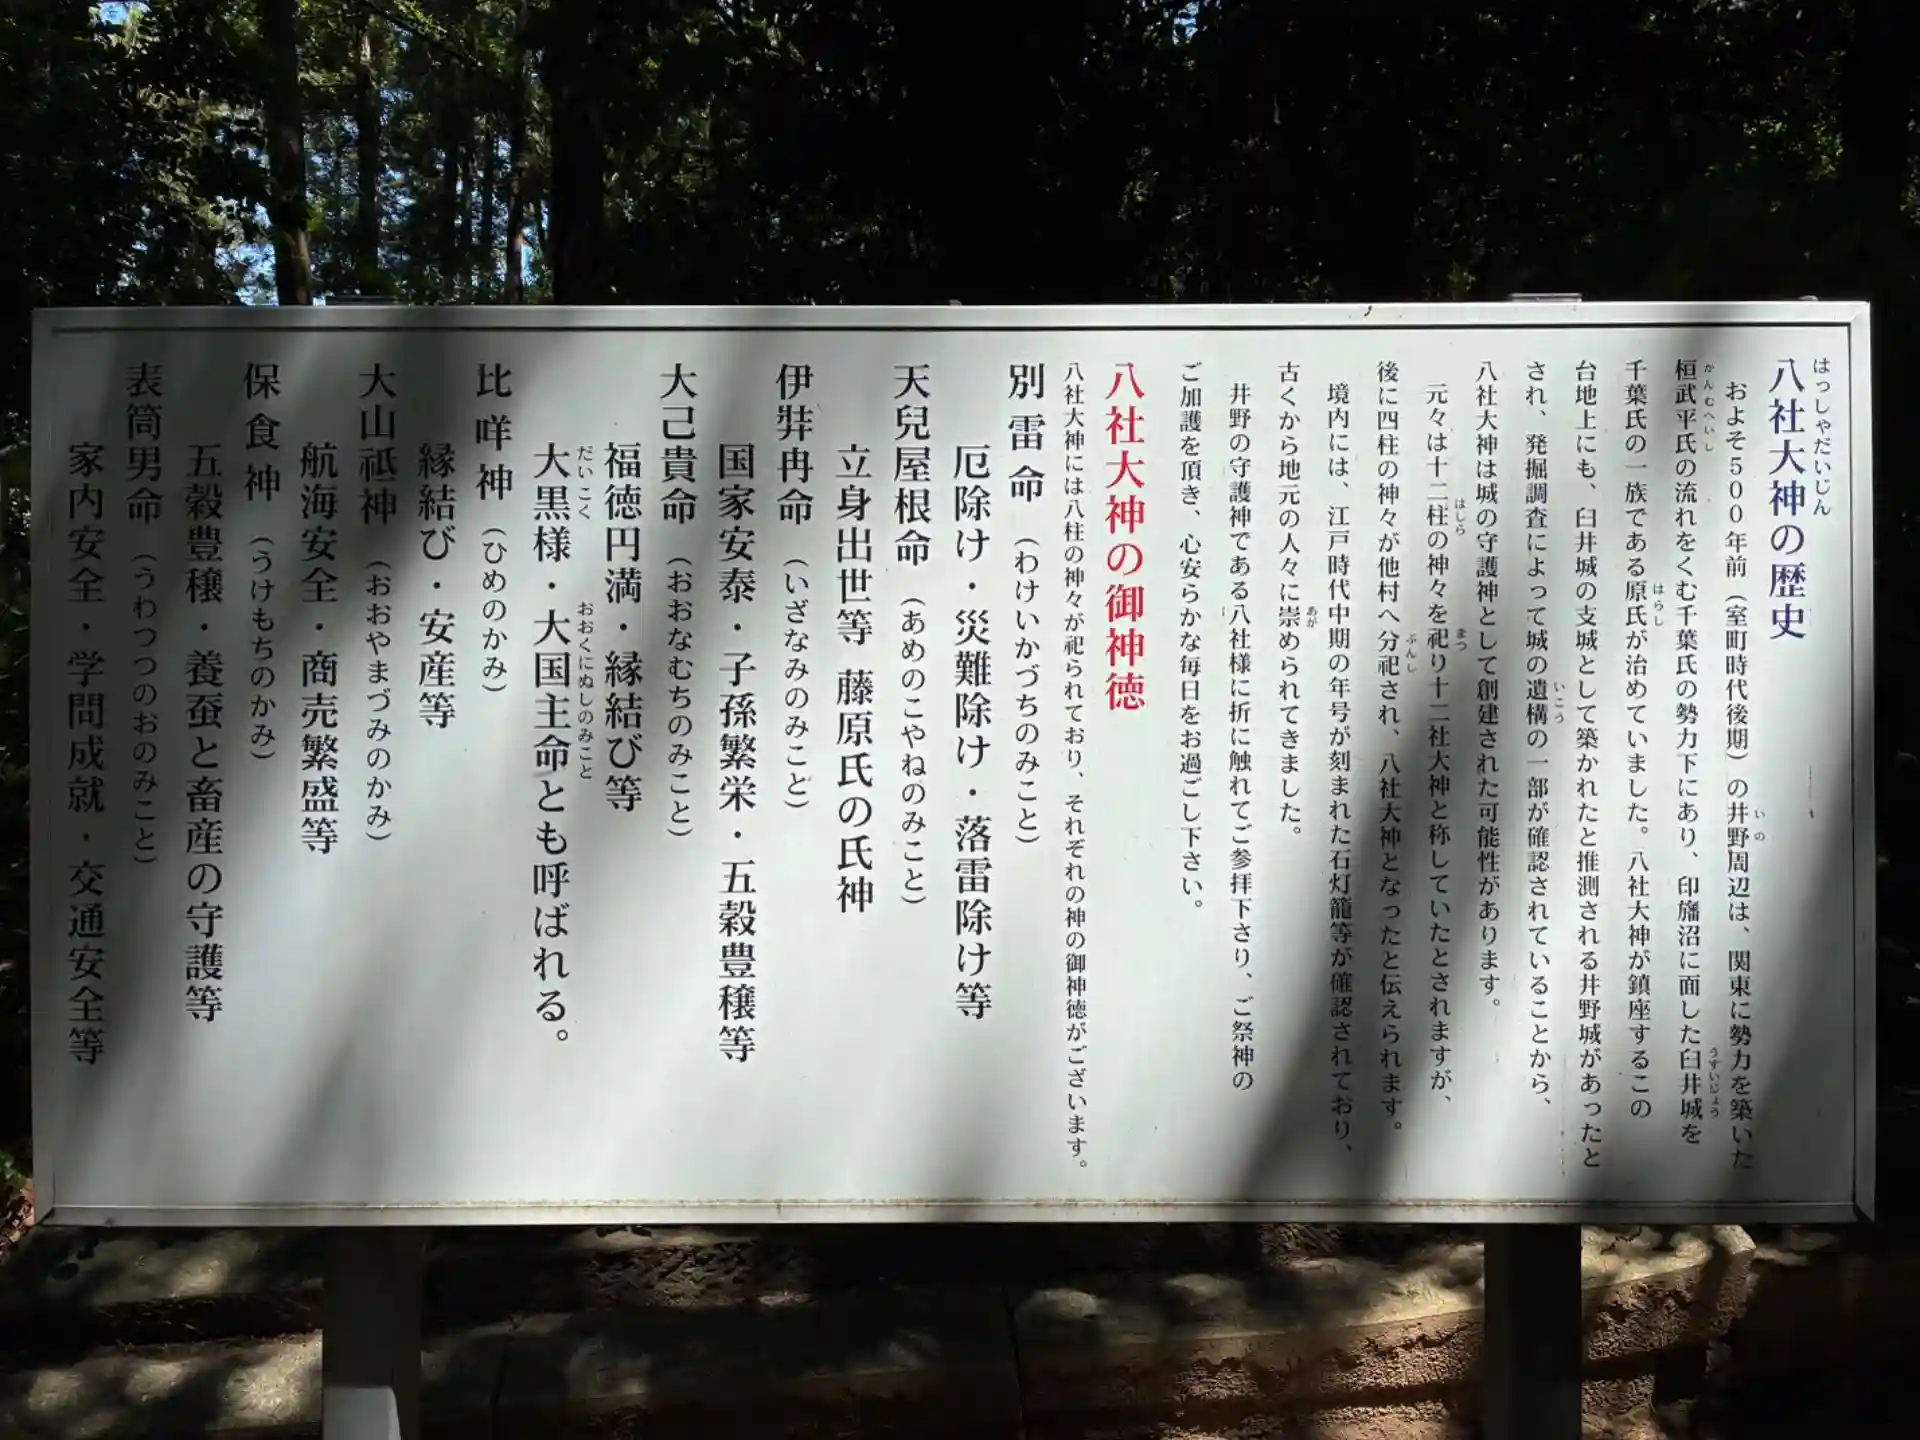 八社大神の歴史
はっしゃだいじん
およそ500年前（室町時代後期）の井野周辺は、関東に勢力を築いた
いの
桓武平氏の流れをくむ千葉氏の勢力下にあり、印旛沼に面した臼井城を
かんむへいし
うすいじょう
千葉氏の一族である原氏が治めていました。八社大神が鎮座するこの
はらし
台地上にも、臼井城の支城として築かれたと推測される井野城があったと
され、発掘調査によって城の遺構の一部が確認されていることから、
いこう
八社大神は城の守護神として創建された可能性があります。
元々は十二柱の神々を祀り十二社大神と称していたとされますが、
はしら
まつ
後に四柱の神々が他村へ分祀され、八社大神となったと伝えられます。
ぶんし
境内には、江戸時代中期の年号が刻まれた石灯籠等が確認されており、
古くから地元の人々に崇められてきました。
あが
井野の守護神である八社様に折に触れてご参拝下さり、ご祭神の
ご加護を頂き、心安らかな毎日をお過ごし下さい。
八社大神の御神徳
八社大神には八柱の神々が祀られており、それぞれの神の御神徳がございます。
別雷命（わけいかづちのみこと）
厄除け・災難除け・落雷除け等
天兒屋根命（あめのこやねのみこと）
立身出世等 藤原氏の氏神
伊弉冉命（いざなみのみこと）
国家安泰・子孫繁栄・五穀豊穣等
大己貴命（おおなむちのみこと）
福徳円満・縁結び等
大黒様・大国主命とも呼ばれる。
だいこく
おおくにぬしのみこと
比咩神（ひめのかみ）
縁結び・安産等
大山祇神（おおやまづみのかみ）
航海安全・商売繁盛等
保食神（うけもちのかみ）
五穀豊穣・養蚕と畜産の守護等
表筒男命（うわつつのおのみこと）
家内安全・学問成就・交通安全等